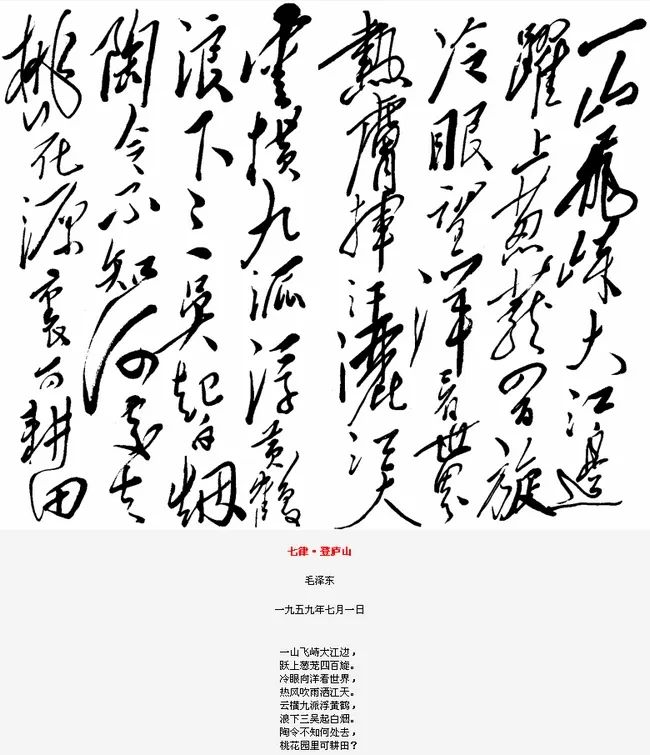 一山飛峙大江邊
躍上葱蘢四百旋
冷眼望洋看世界
熱膚揮汗灑江天
雲横九派浮黄鶴
浪下三吳起白烟
陶令不知何處去
桃花源裏可耕田
七律·登庐山
毛泽东
一九五九年七月一日
一山飞峙大江边，
跃上葱茏四百旋。
冷眼向洋看世界，
热风吹雨洒江天。
云横九派浮黄鹤，
浪下三吴起白烟。
陶令不知何处去，
桃花园里可耕田？